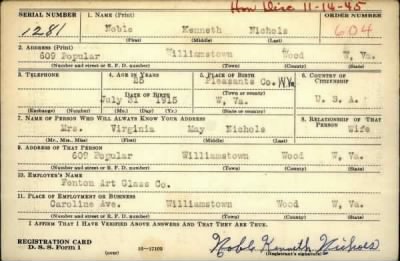 Hon Disc 11-14-45
SERIAL NUMBER 1. NAME (Print) ORDER NUMBER
1281 Noble Kenneth Nichols 604
(First) (Middle) (Last)
2. ADDRESS (Print)
609 Popular Williamstown Wood W, Va.
(Number and street or R. F. D. number) (Town) (County) (State)
3. TELEPHONE 4. AGE IN YEARS 5. PLACE OF BIRTH 6. COUNTRY OF CITIZENSHIP
25 Pleasants Co. W.Va.
DATE OF BIRTH
July 31 1915 W, Va. U. S. A.
(Exchange) (Number) (Mo.) (Day) (Yr.) (State or country)
7. NAME OF PERSON WHO WILL ALWAYS KNOW YOUR ADDRESS 8. RELATIONSHIP OF THAT PERSON
Mrs. Virginia May Nichols Wife
(Mr., Mrs., Miss) (First) (Middle) (Last)
9. ADDRESS OF THAT PERSON
609 Popular Williamstown Wood W, Va.
(Number and street or R. F. D. number) (Town) (County) (State)
10. EMPLOYER'S NAME
Fenton Art Glass Co.
11. PLACE OF EMPLOYMENT OR BUSINESS
Caroline Ave. Williamstown Wood W, Va.
(Number and street or R. F. D. number) (Town) (County) (State)
I AFFIRM THAT I HAVE VERIFIED ABOVE ANSWERS AND THAT THEY ARE TRUE.
REGISTRATION CARD
D. S. S. Form 1 (over) 16—17105 Noble Kenneth Nichols
(Registrant's signature)